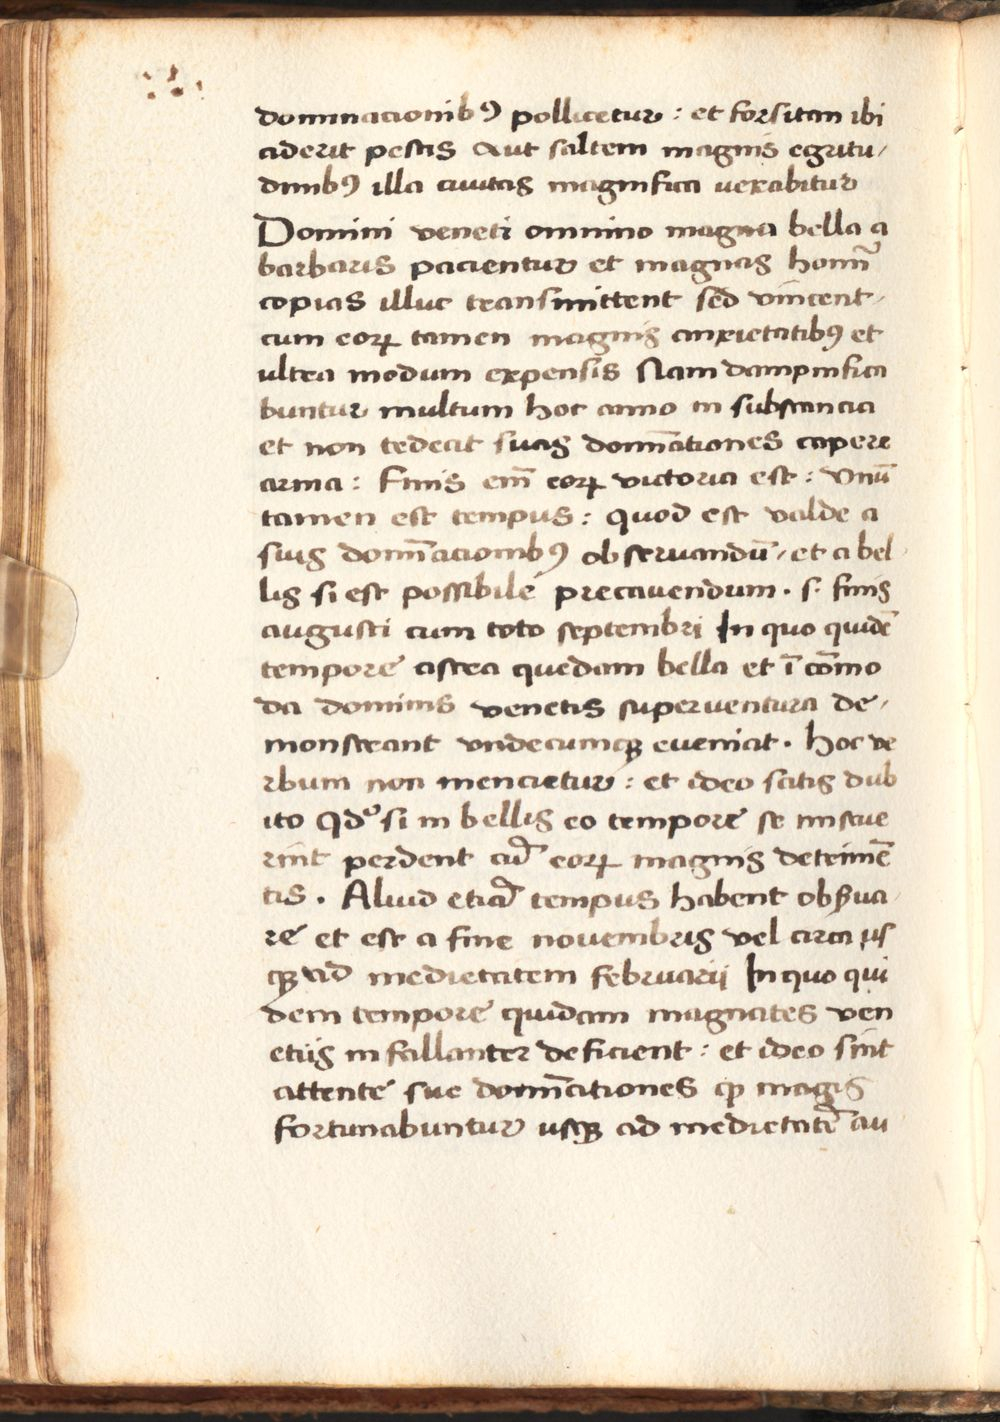 dominacionibꝰ pollicetur : et forsitan ibi
aderit pestis aut saltem magnis egritu/
dinibꝰ illa ciuitas magnifica uexabitur
Domini veneti omnino magna bella a
barbaris pacientur et magnas homĩ
copias illuc transmittent sed vincent/
cum eorꝝ tamen magnis anxietatibꝰ et
ultra modum expensis Nam dampnifica
buntur multum hoc anno in substancia
et non tedeat suas domĩationes capere
arma : Finis em̃ eorꝝ victoria est : Vnũ
tamen est tempus : quod est valde a
suis domĩacionibꝰ obseruandũ / et a bel
lis si est possibile precauendum . s. finis
augusti cum toto septembri In quo quidẽ
tempore astra quedam bella et ĩ cõmo
da dominis venetis superuentura de/
monstrant vndecumqꝫ eueniat . hoc ve
rbum non mencietur : et ideo satis dub
ito qdº si in bellis eo tempore se miscue
rint perdent cũ eorꝝ magnis detrimẽ
tis . Aliud etiã tempus habent obẜua/
re et est a fine nouembris vel circa us
qꝫ ad medietatem februarii In quo qui
dem tempore quidam magnates ven
etiis infallanter deficient : et ideo sint
attente sue domĩationes qꝫ magis
fortunabuntur usqꝫ ad medietatẽ au